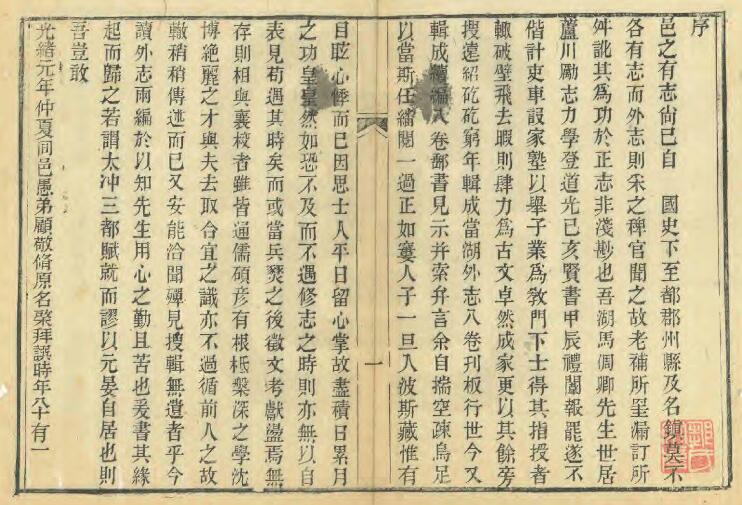 序
邑之有志尙已自　國史下至都郡州縣及名鎭莫不
各有志而外志則采之稗官聞之故老補所罣漏訂所
舛訛其爲功於正志非淺尠也吾湖馬侗卿先生世居
蘆川勵志力學登道光己亥賢書甲辰禮闈報罷遂不
偕計吏車設家塾以舉子業爲敎門下士得其指授者
輒破壁飛去暇則肆力爲古文卓然成家更以其餘旁
搜遠紹矻矻窮年輯成當湖外志八卷刊板行世今又
輯成續編八卷郵書見示幷索弁言余自揣空疎烏足
以當斯任繙閱一過正如窶人子一旦入波斯藏惟有
目眩心悸而已因思士人平日留心掌故盡積日累月
之功皇皇然如恐不及而不遇修志之時則亦無以自
表見苟遇其時矣而或當兵燹之後徵文考獻盪焉無
存則相與襄校者雖皆通儒碩彦有根柢槃深之學沈
博絶麗之才與夫去取合宜之識亦不過循前人之故
轍稍稍傳述而已又安能洽聞殫見搜輯無遺者乎今
讀外志兩編於以知先生用心之勤且苦也爰書其緣
起而歸之若謂太冲三都賦就而謬以元晏自居也則
吾豈敢
光緒元年仲夏同邑愚弟顧敬脩原名榮拜譔時年八十有一
一